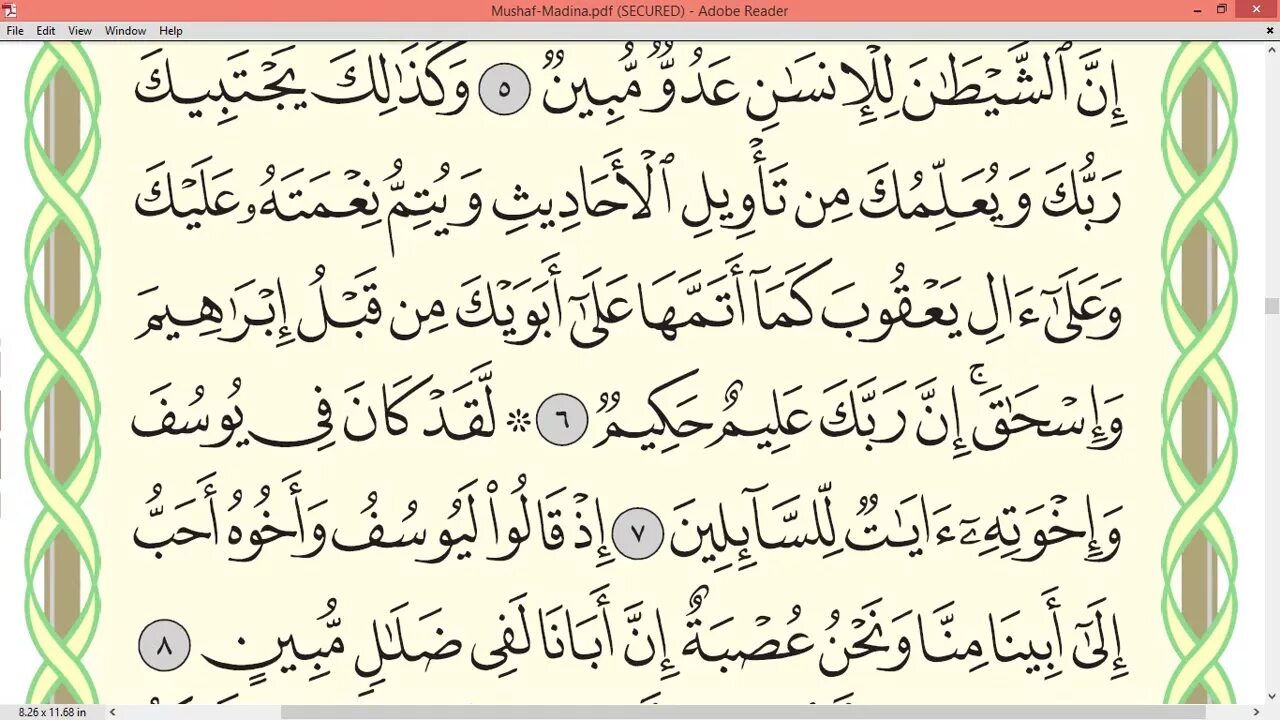 Mushaf-Madina.pdf (SECURED) - Adobe Reader
File Edit View Window Help
إِنَّ ٱلشَّيْطَٰنَ لِلْإِنسَٰنِ عَدُوٌّ مُّبِينٌ ٥ وَكَذَٰلِكَ يَجْتَبِيكَ
رَبُّكَ وَيُعَلِّمُكَ مِن تَأْوِيلِ ٱلْأَحَادِيثِ وَيُتِمُّ نِعْمَتَهُۥ عَلَيْكَ
وَعَلَىٰٓ ءَالِ يَعْقُوبَ كَمَآ أَتَمَّهَا عَلَىٰٓ أَبَوَيْكَ مِن قَبْلُ إِبْرَٰهِيمَ
وَإِسْحَٰقَۚ إِنَّ رَبَّكَ عَلِيمٌ حَكِيمٌ ٦ ۞ لَّقَدْ كَانَ فِي يُوسُفَ
وَإِخْوَتِهِۦٓ ءَايَٰتٌ لِّلسَّآئِلِينَ ٧ إِذْ قَالُوا۟ لَيُوسُفُ وَأَخُوهُ أَحَبُّ
إِلَىٰٓ أَبِينَا مِنَّا وَنَحْنُ عُصْبَةٌ إِنَّ أَبَانَا لَفِى ضَلَٰلٍ مُّبِينٍ ٨
8.26 x 11.68 in